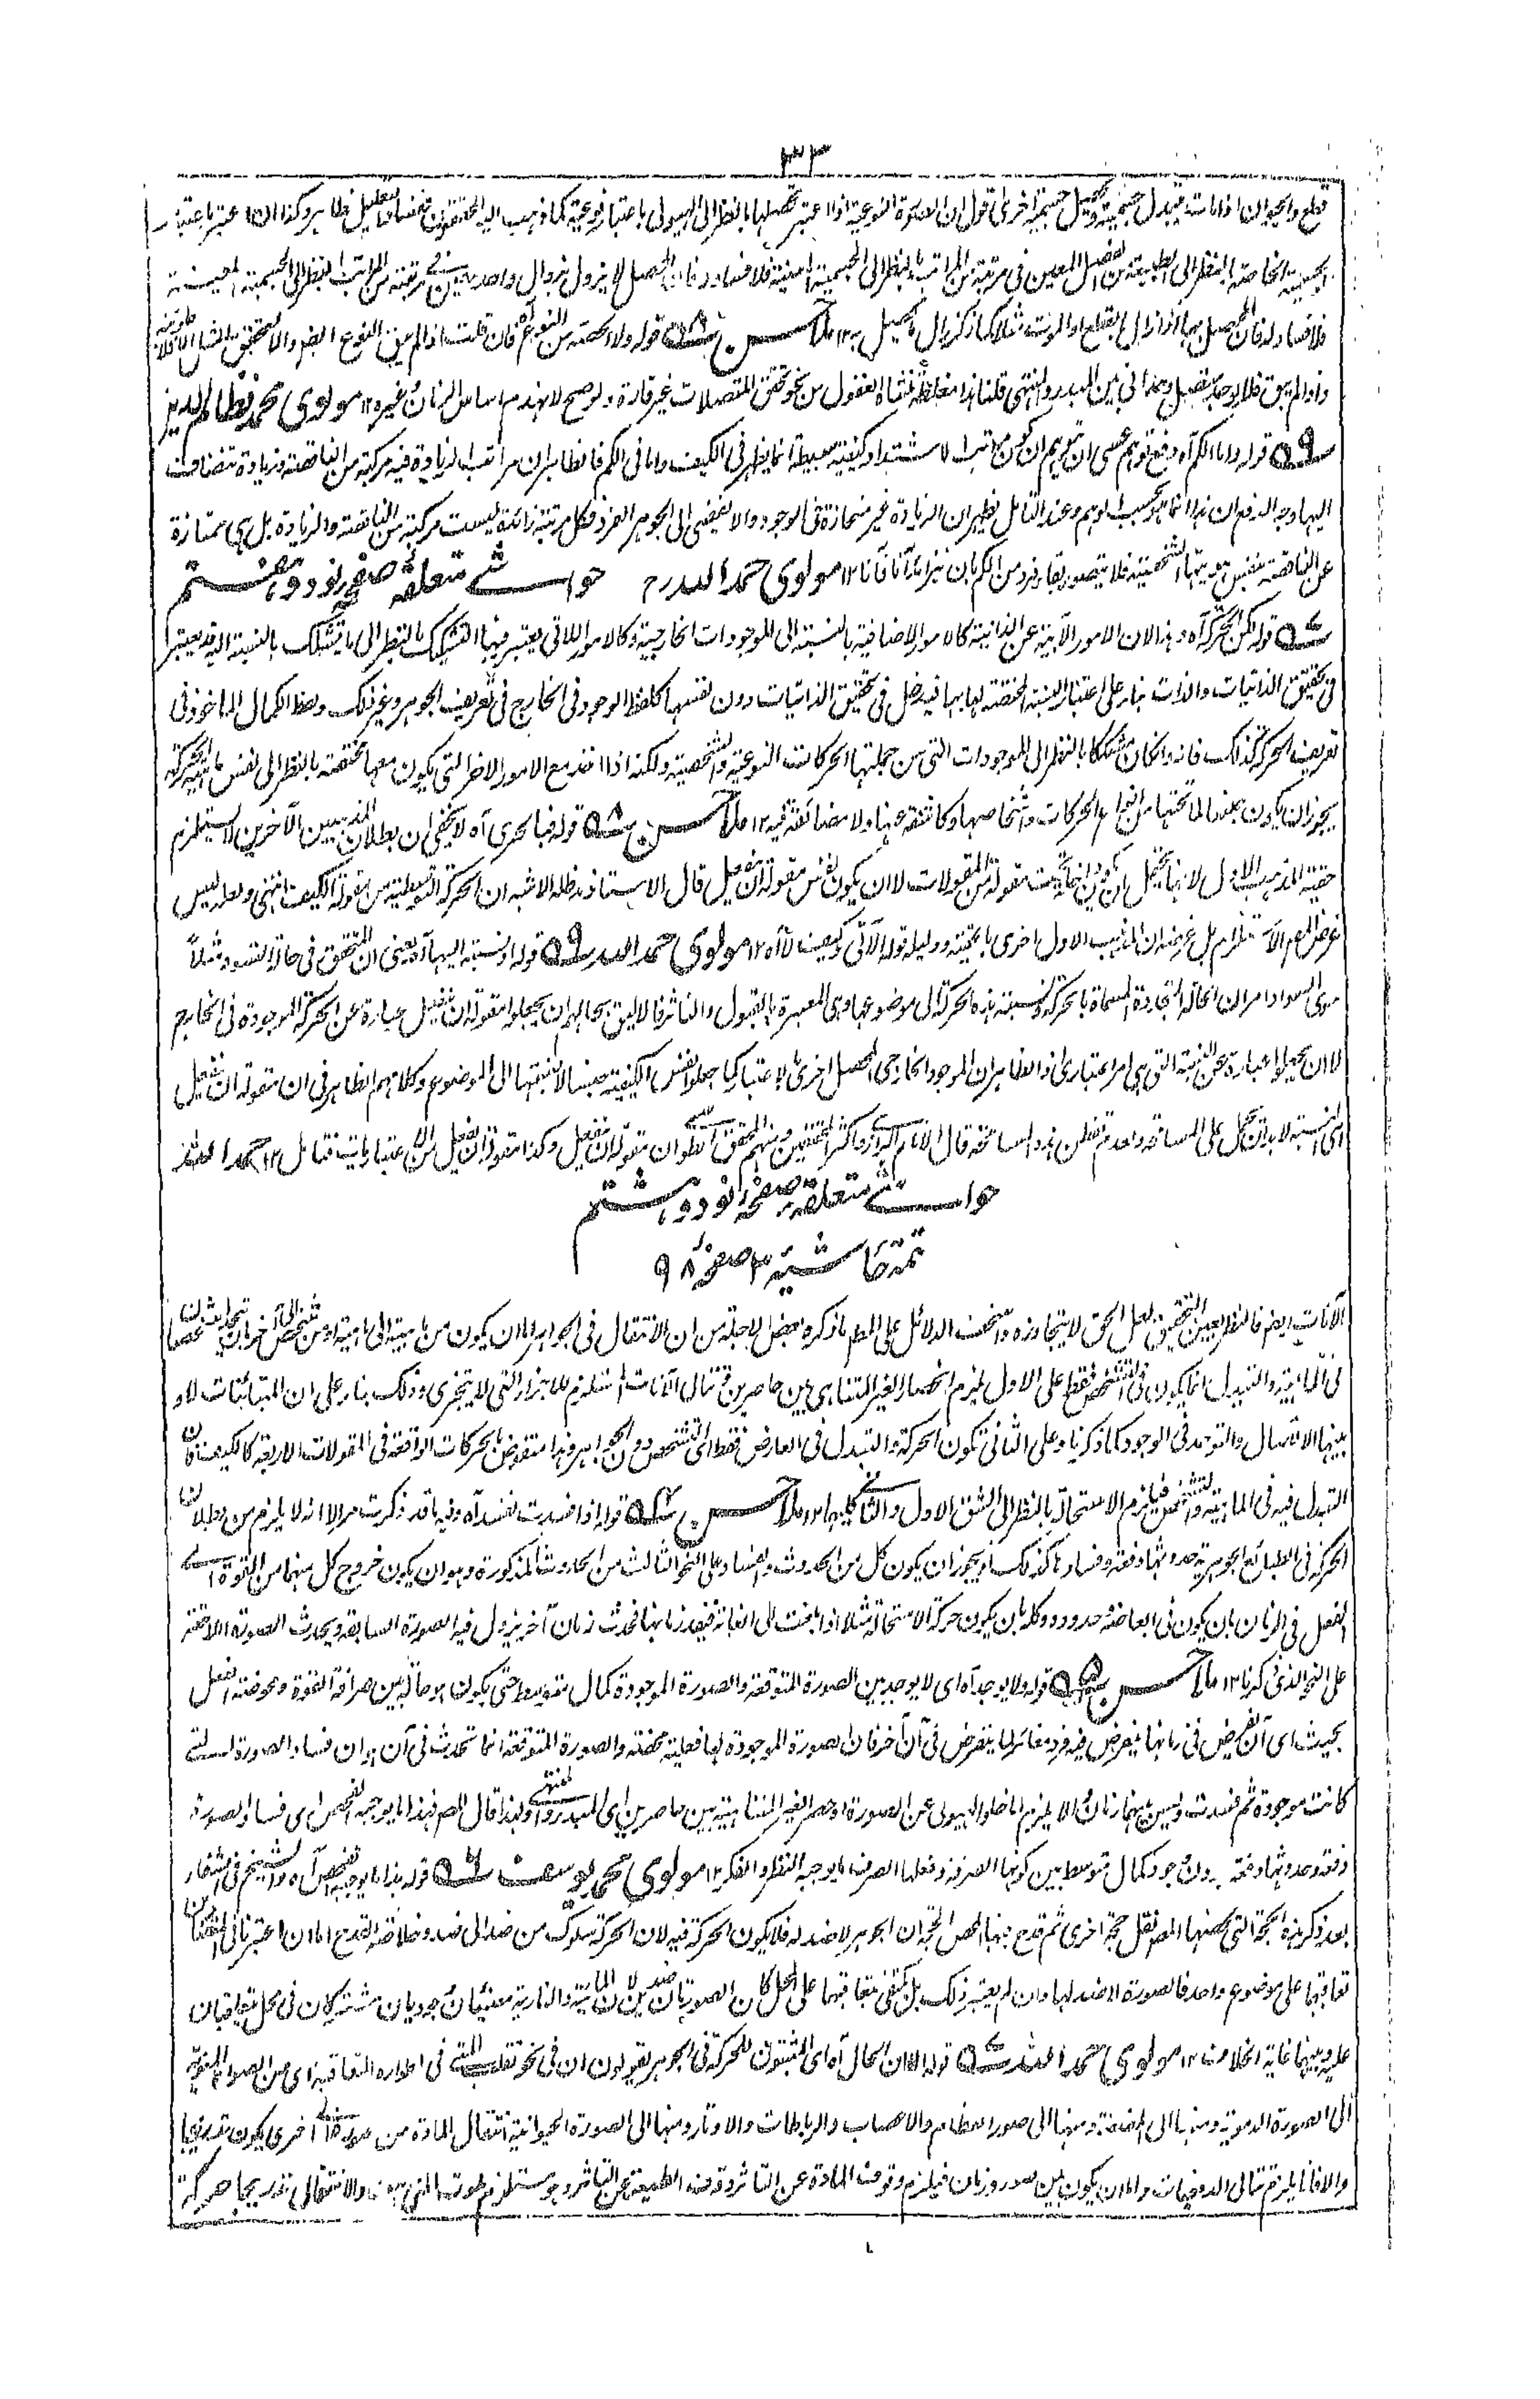 ٣٣
قطع والحيوان اذا مات فيتبدل جسمية وتحصيل جسمية اخرى اقول ان الصورة النوعية اذا اعتبر تحصيلها بالنظر الى الهيولى باعتبار نوعية كما ذهب اليه المحققون فيضاف التحصيل ظاهر وكذا ان اعتبر باعتبار
الجسمية الخاصة بالنظر الى الطبيعة من الفصل المعين في مرتبة من المراتب بالنظر الى الجسمية المعينة فلا فساد فان المحصل لا يزول بزوال واحد معين في مرتبة من المراتب بالنظر الى الجسمية المعينة
فلا فساد له فان المحصل بها اذا زال بالقطع او الموت مثلا كما ذكر زال التحصيل به ١٢ ملا حسن ٥٨ قوله ولا حصة من النوع آه فان قلت اذا لم يبق النوع ايضا
واذا لم يبق فلا يوجد متصل واحد في بين المبدء والمنتهى قلنا هذا مغالطة نشأ من العقول من نحو تحقق المتصلات غير قارة ولو صح لانهدم اساس الزمان وغيره ١٢ مولوى محمد نظام الدين
٥٩ قوله واما الكم آه دفع توهم عسى ان يتوهم ان كون مراتب الاشتداد كيفية بسيطة انما يظهر في الكيف واما في الكم فالظاهر ان مراتب الزيادة فيه مركبة من الناقصة وزيادة تنضاف
اليها وجه الدفع ان هذا انما هو بحسب الوهم وعند التامل يظهر ان الزيادة غير منحازة في الوجود والا لافضى الى الجوهر الفرد فكل مرتبة زائدة ليست مركبة من الناقصة والزيادة بل هي ممتازة
عن الناقصة بنفس هويتها الشخصية فلا يتصور بقاء فرد من الكم بان يتزايد آنا فآنا ١٢ مولوى حمد الله رح حواشى متعلقۂ صفحۂ نود و هشتم
٥١ قوله لكن الحركة آه وهذا لان الامور الآبية عن الذاتية كالامور الاضافية بالنسبة الى الموجودات الخارجية وكالامور اللاتي يعتبر فيها التشكيك بالنظر الى ما يتشكك بالنسبة اليه قد يعتبر
في تحقيق الذاتيات والذات بناء على اعتبار النسبة المختصة لها بها فيدخل في تحقيق الذاتيات دون نفسها كلفظ الوجود في الخارج في تعريف الجوهر وغير ذلك ولفظ الكمال الماخوذ في
تعريف الحركة كذلك فانه وان كان مشككا بالنظر الى الموجودات التي من جملتها الحركات النوعية والشخصية ولكنه اذا اخذ مع الامور الاخر التي يكون معها مختصة بالنظر الى نفس ماهية الحركة
يجوز ان يكون جنسا لما تحتها من انواع الحركات واشخاصها وكاشفة عنها ولا مضائقة فيه ١٢ ملا حسن ٥٨ قوله فبالحرى آه لا يخفى ان بطلان المذهبين الآخرين لا يستلزم
حقية المذهب الاول لانها يحتمل ان يكون داخلة تحت مقولة من المقولات لا ان يكون نفس مقولة ان ينفعل قال الاستاذ مد ظله الاشبه ان الحركة التوسطية من مقولة الكيف انتهى ولعله ليس
غرض المص الاستلزام بل غرضه ان المذهب الاول احرى بالحقية ودليله قوله الآتى وكيف لا آه ١٢ مولوى حمد الله ٥٩ قوله او نسبة اليها آه يعنى ان المتحقق في حالة التسود مثلا
سوى السواد امران الحالة المتجددة المسماة بالحركة ونسبة هذه الحركة الى موضوعها وهي المعبرة بالقبول والتاثر فاللايق بحالهم ان يجعلوا مقولة ان ينفعل عبارة عن الحركة الموجودة في الخارج
لا ان يجعلوا عبارة عن النسبة التي هي امر اعتبارى اذ الظاهر ان الموجود الخارجى المحصل احرى بالاعتبار كما جعلوا نفس الكيفية جنسا لا نسبتها الى الموضوع وكلامهم الظاهر في ان مقولة ان ينفعل
هي النسبة لا بد ان يحمل على المسامحة وبعد تفطن هذه المسامحة قال الامام الرازى واكثر المحققين ومنهم المحقق الطوسى ان مقولة ان ينفعل وكذا مقولة ان يفعل من الاعتباريات فتامل ١٢ حمد الله
حواشى متعلقۂ صفحۂ نود و هشتم
تتمۂ حاشيۂ ٣ صفحۂ ٩٨
الآنات ايضا فالنظر بعين التحقيق لعل الحق لا يتجاوزه واسخف الدلائل على المط ما ذكره بعض الاجلة من ان الانتقال في الجوهر اما ان يكون من ماهية الى ماهية او من شخص الى آخر بان
في الماهية والتبدل انما يكون في التشخص فقط على الاول يلزم انحصار الغير المتناهى بين حاصرين وتتالى الآنات المستلزم للاجزاء التي لا يتجزى وذلك بناء على ان المتبائنات لا
بينها الاتصال والتوحد في الوجود كما ذكرنا وعلى الثاني تكون الحركة والتبدل في العارض فقط اى التشخص دون الجوهر وهذا منقوض بالحركات الواقعة في المقولات الاربعة كالكيف فان
التبدل فيه في الماهية والتشخص فيلزم الاستحالة بالنظر الى الشق الاول والثانى كليهما ١٢ ملا حسن ٥٤ قوله اذا فسدت تفسد آه وفيه ما قد ذكرت مرارا انه لا يلزم من بطلان
الحركة في الطبائع الجوهرية حدوثها دفعة وفسادها كذلك اذ يجوز ان يكون كل من الحدوث والفساد على النحو الثالث من الحدوث المذكورة وهو ان يكون خروج كل منهما من القوة الى
الفعل في الزمان بان يكون في ابعاضه حدوده وكله بان يكون حركة الاستحالة مثلا اذا بلغت الى الغاية فبعد زمانها تحدث زمان آخر يزول فيه الصورة السابقة ويحدث الصورة اللاحقة
على النحو الذي ذكرنا ١٢ ملا حسن ٥٥ قوله ولا يوجد آه اى لا يوجد بين الصورة المتوقعة والصورة الموجودة كمال متوسط حتى يكون هو حالة بين صرافة القوة ومحوضة الفعل
بحيث اى آن يفرض في زمانها يفرض فيه فرد مغائر لما يفرض في آن آخر فان الصورة الموجودة لها فعلية محضة والصورة المتوقعة انما تحدث في آن هو آن فساد الصورة التي
كانت موجودة ثم فسدت وليس بينهما زمان والا يلزم اما خلو الهيولى عن الصورة او حصر الغير المتناهية بين حاصرين اى المبدء والمنتهى ولهذا قال المص فهذا ما يوجبه الفحص اى فساد الصورة
دفعة وحدوثها دفعة بدون وجود كمال متوسط بين كونها الصرفة وفعلها الصرف مما يوجبه النظر والفكر ١٢ مولوى محمد يوسف ٥٦ قوله هذا ما يوجبه الفحص آه والشيخ في الشفاء
بعد ذكر هذه الحجة التي لخصها المص نقل حجة اخرى ثم قدح فيها ملخص الحجة ان الجوهر لا ضد له فلا يكون الحركة فيه لان الحركة سلوك من ضد الى ضد وخلاصة القدح اما ان اعتبر في المتضادين
تعاقبهما على موضوع واحد فالصورة لا ضد لها وان لم يعتبر ذلك بل يكتفى بتعاقبهما على المحل كان الصورتان ضدين لان المائية والنارية معنيان وجوديان مشتركان في محل يتعاقبان
عليه وبينهما غاية الخلاف ١٢ مولوى حمد الله ٥٧ قوله الا ان الحال آه اى المثبتون للحركة في الجوهر يقولون ان في نحو تقلب المنى في اطواره المتعاقبة اى من الصورة المنوية
الى الصورة الدموية ومنها الى المضغة ومنها الى صور العظام والاعصاب والرباطات والاوتار ومنها الى الصورة الحيوانية انتقال المادة من صورة الى اخرى يكون تدريجا
والا فاما يلزم تتالى الدفعيات واما ان يكون بين الصور زمان فيلزم وقوف المادة عن التاثر ووقف الطبيعة عن التاثير وهو مستلزم لموت المنى والانتقال تدريجا حركة